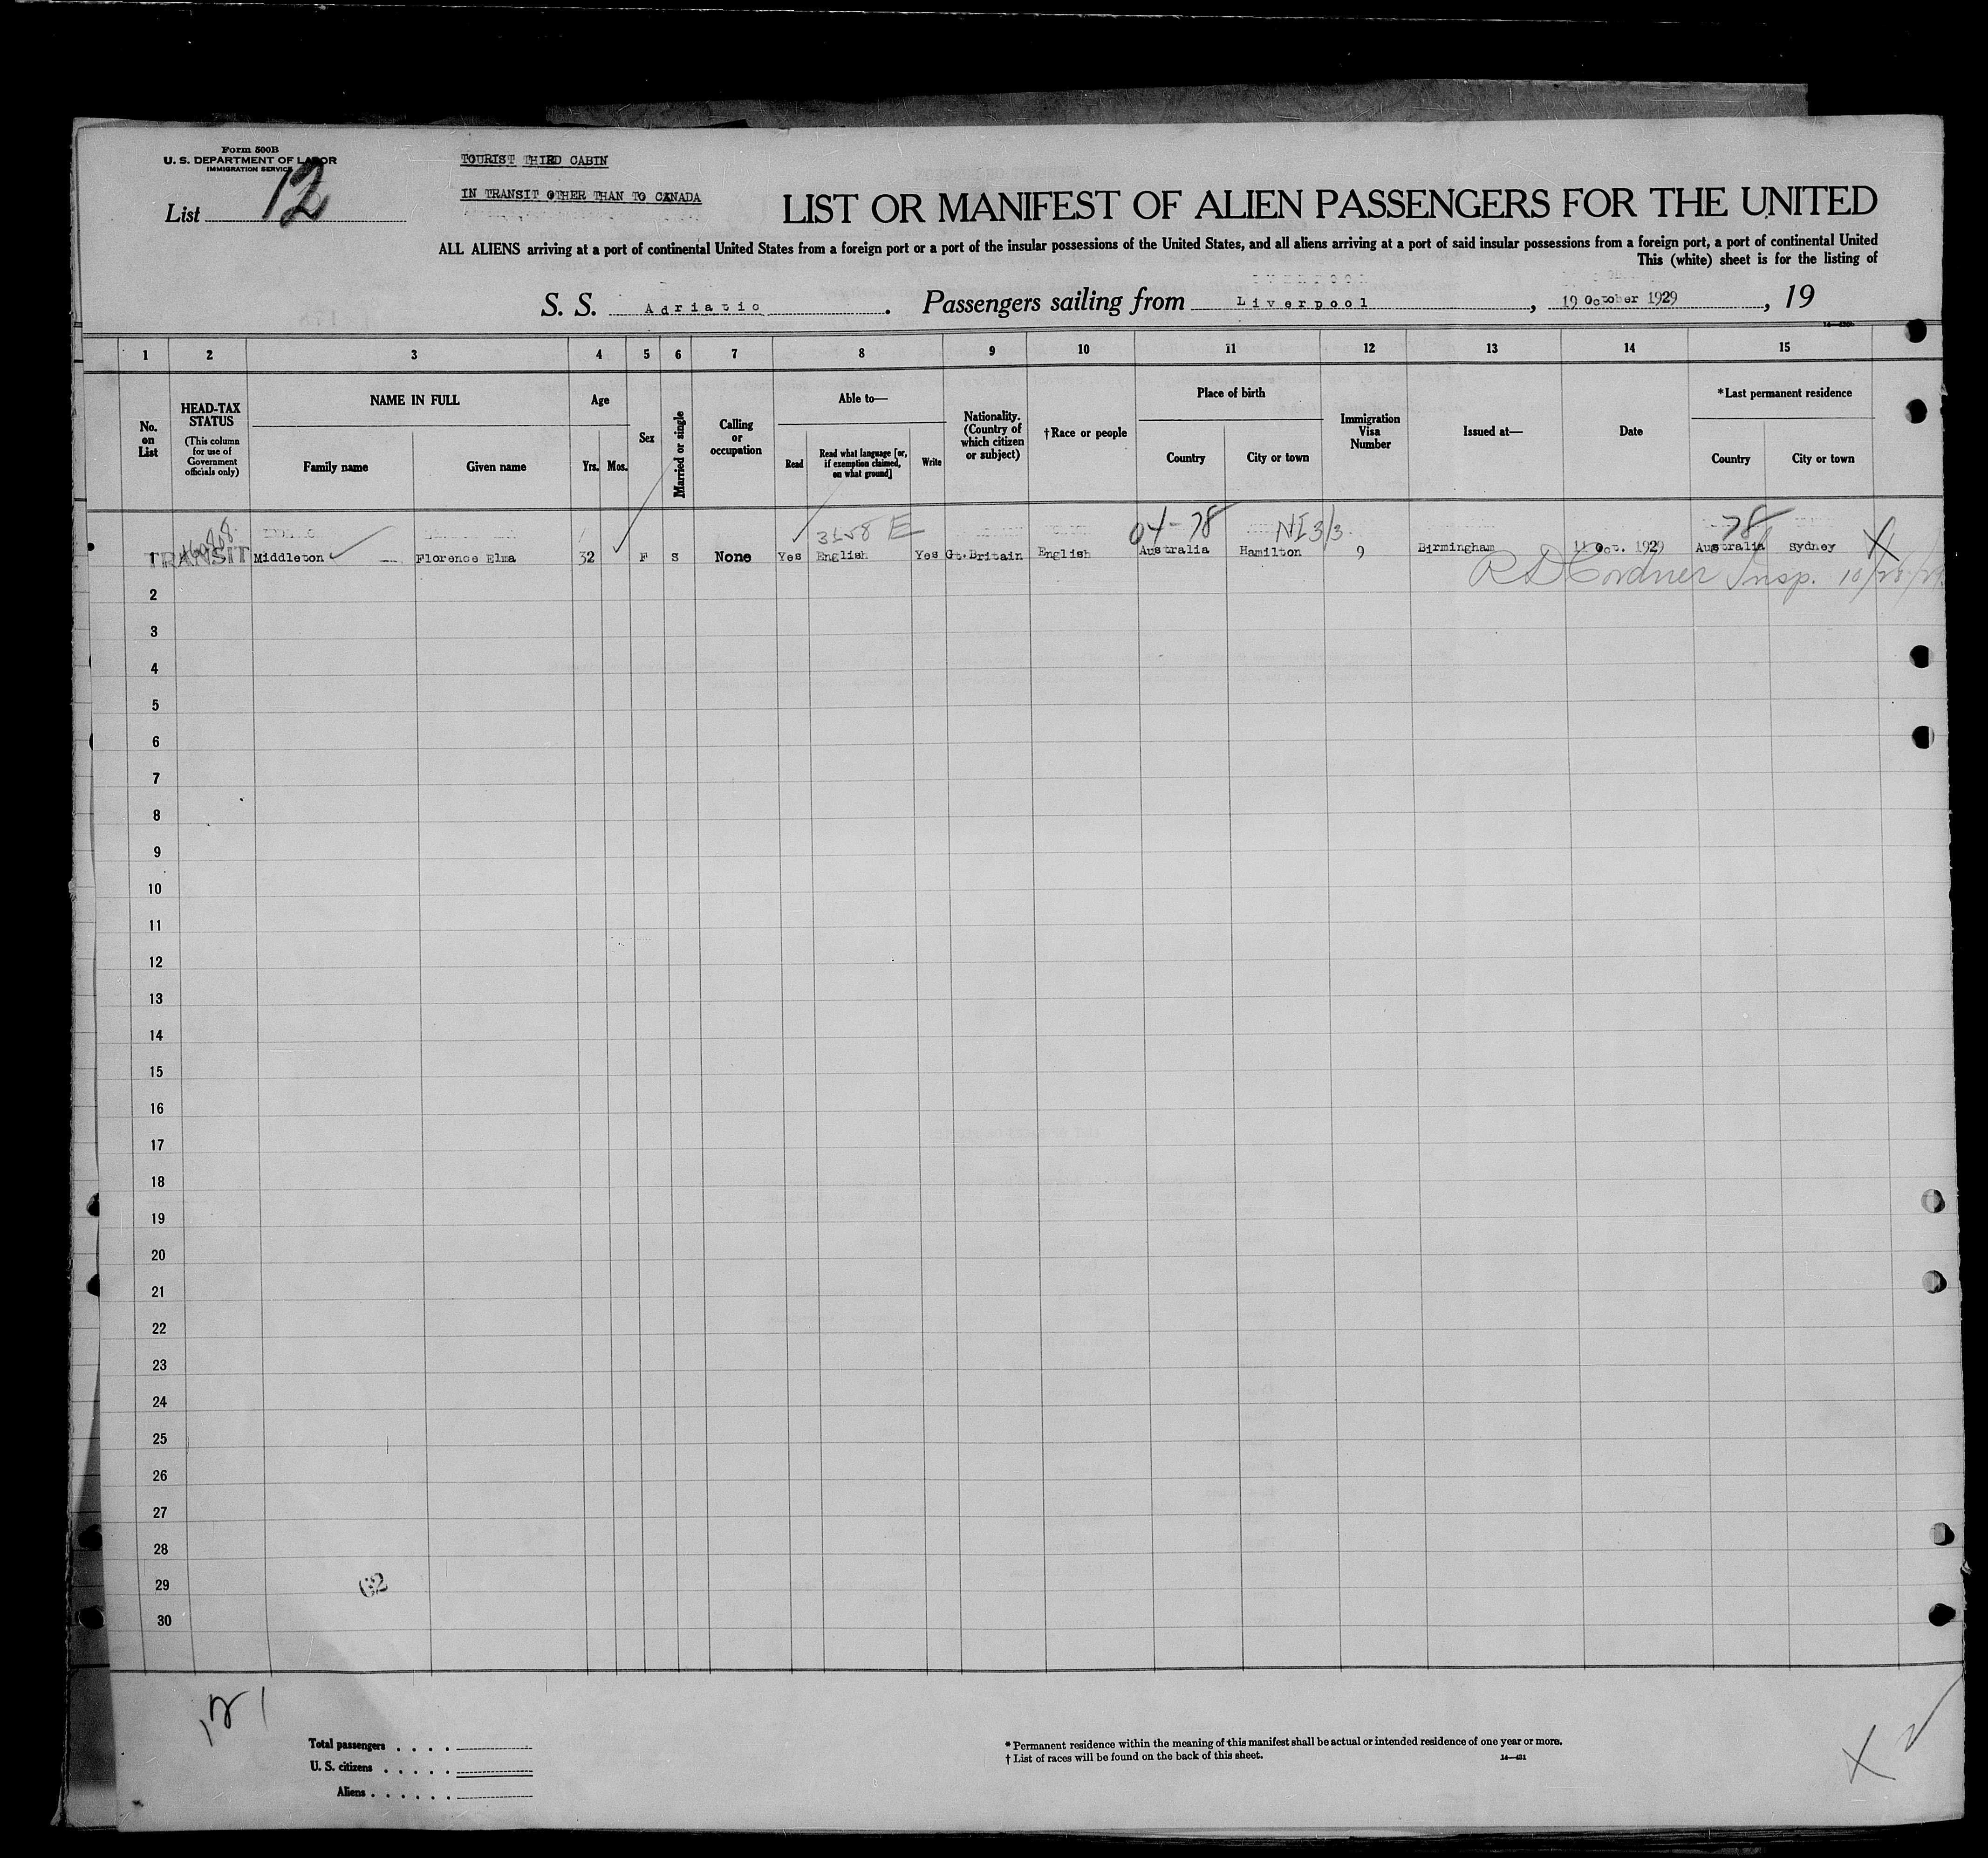 Form 500B
U. S. DEPARTMENT OF LABOR
IMMIGRATION SERVICE
List 12
TOURIST THIRD CABIN
IN TRANSIT OTHER THAN TO CANADA
LIST OR MANIFEST OF ALIEN PASSENGERS FOR THE UNITED
ALL ALIENS arriving at a port of continental United States from a foreign port or a port of the insular possessions of the United States, and all aliens arriving at a port of said insular possessions from a foreign port, a port of continental United
This (white) sheet is for the listing of
S. S. Adriatic. Passengers sailing from Liverpool, 19 October 1929, 19
1 2 3 4 5 6 7 8 9 10 11 12 13 14 15
No. on List
HEAD-TAX STATUS
(This column for use of Government officials only)
NAME IN FULL
Family name Given name
Age
Yrs. Mos.
Sex
Married or single
Calling or occupation
Able to—
Read
Read what language [or, if exemption claimed, on what ground]
Write
Nationality. (Country of which citizen or subject)
†Race or people
Place of birth
Country City or town
Immigration Visa Number
Issued at—
Date
*Last permanent residence
Country City or town
04-78 NI3/3 78
1 TRANSIT Middleton Florence Elma 32 F S None Yes English Yes Gt.Britain English Australia Hamilton 9 Birmingham 11 Oct. 1929 Australia Sydney X
R D Cordner Insp. 10/28/29
2
3
4
5
6
7
8
9
10
11
12
13
14
15
16
17
18
19
20
21
22
23
24
25
26
27
28
29
30
62
Total passengers . . . .
U. S. citizens . . . . .
Aliens . . . . . .
* Permanent residence within the meaning of this manifest shall be actual or intended residence of one year or more.
† List of races will be found on the back of this sheet.
14—431
X